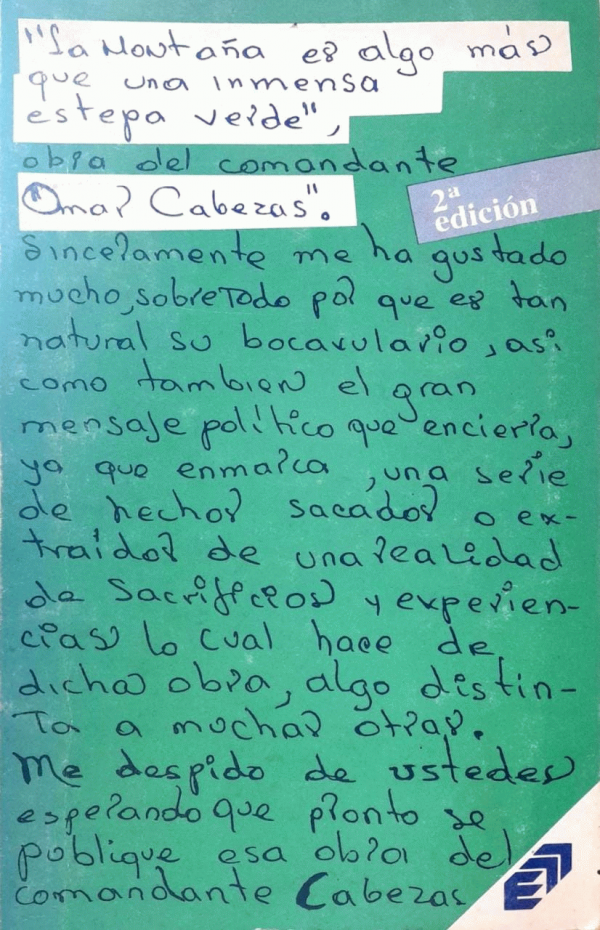 "La Montaña es algo más
que una inmensa
estepa verde",
obra del comandante
"Omar Cabezas".
2ª
edición
Sinceramente me ha gustado
mucho, sobre todo por que es tan
natural su bocavulario, asi
como tambien el gran
mensaje político que encierra,
ya que enmarca, una serie
de hechos sacados o ex-
traidos de una realidad
de sacrificios y experien-
cias lo cual hace de
dicha obra, algo distin-
ta a muchas otras.
Me despido de ustedes
esperando que pronto se
publique esa obra del
comandante Cabezas